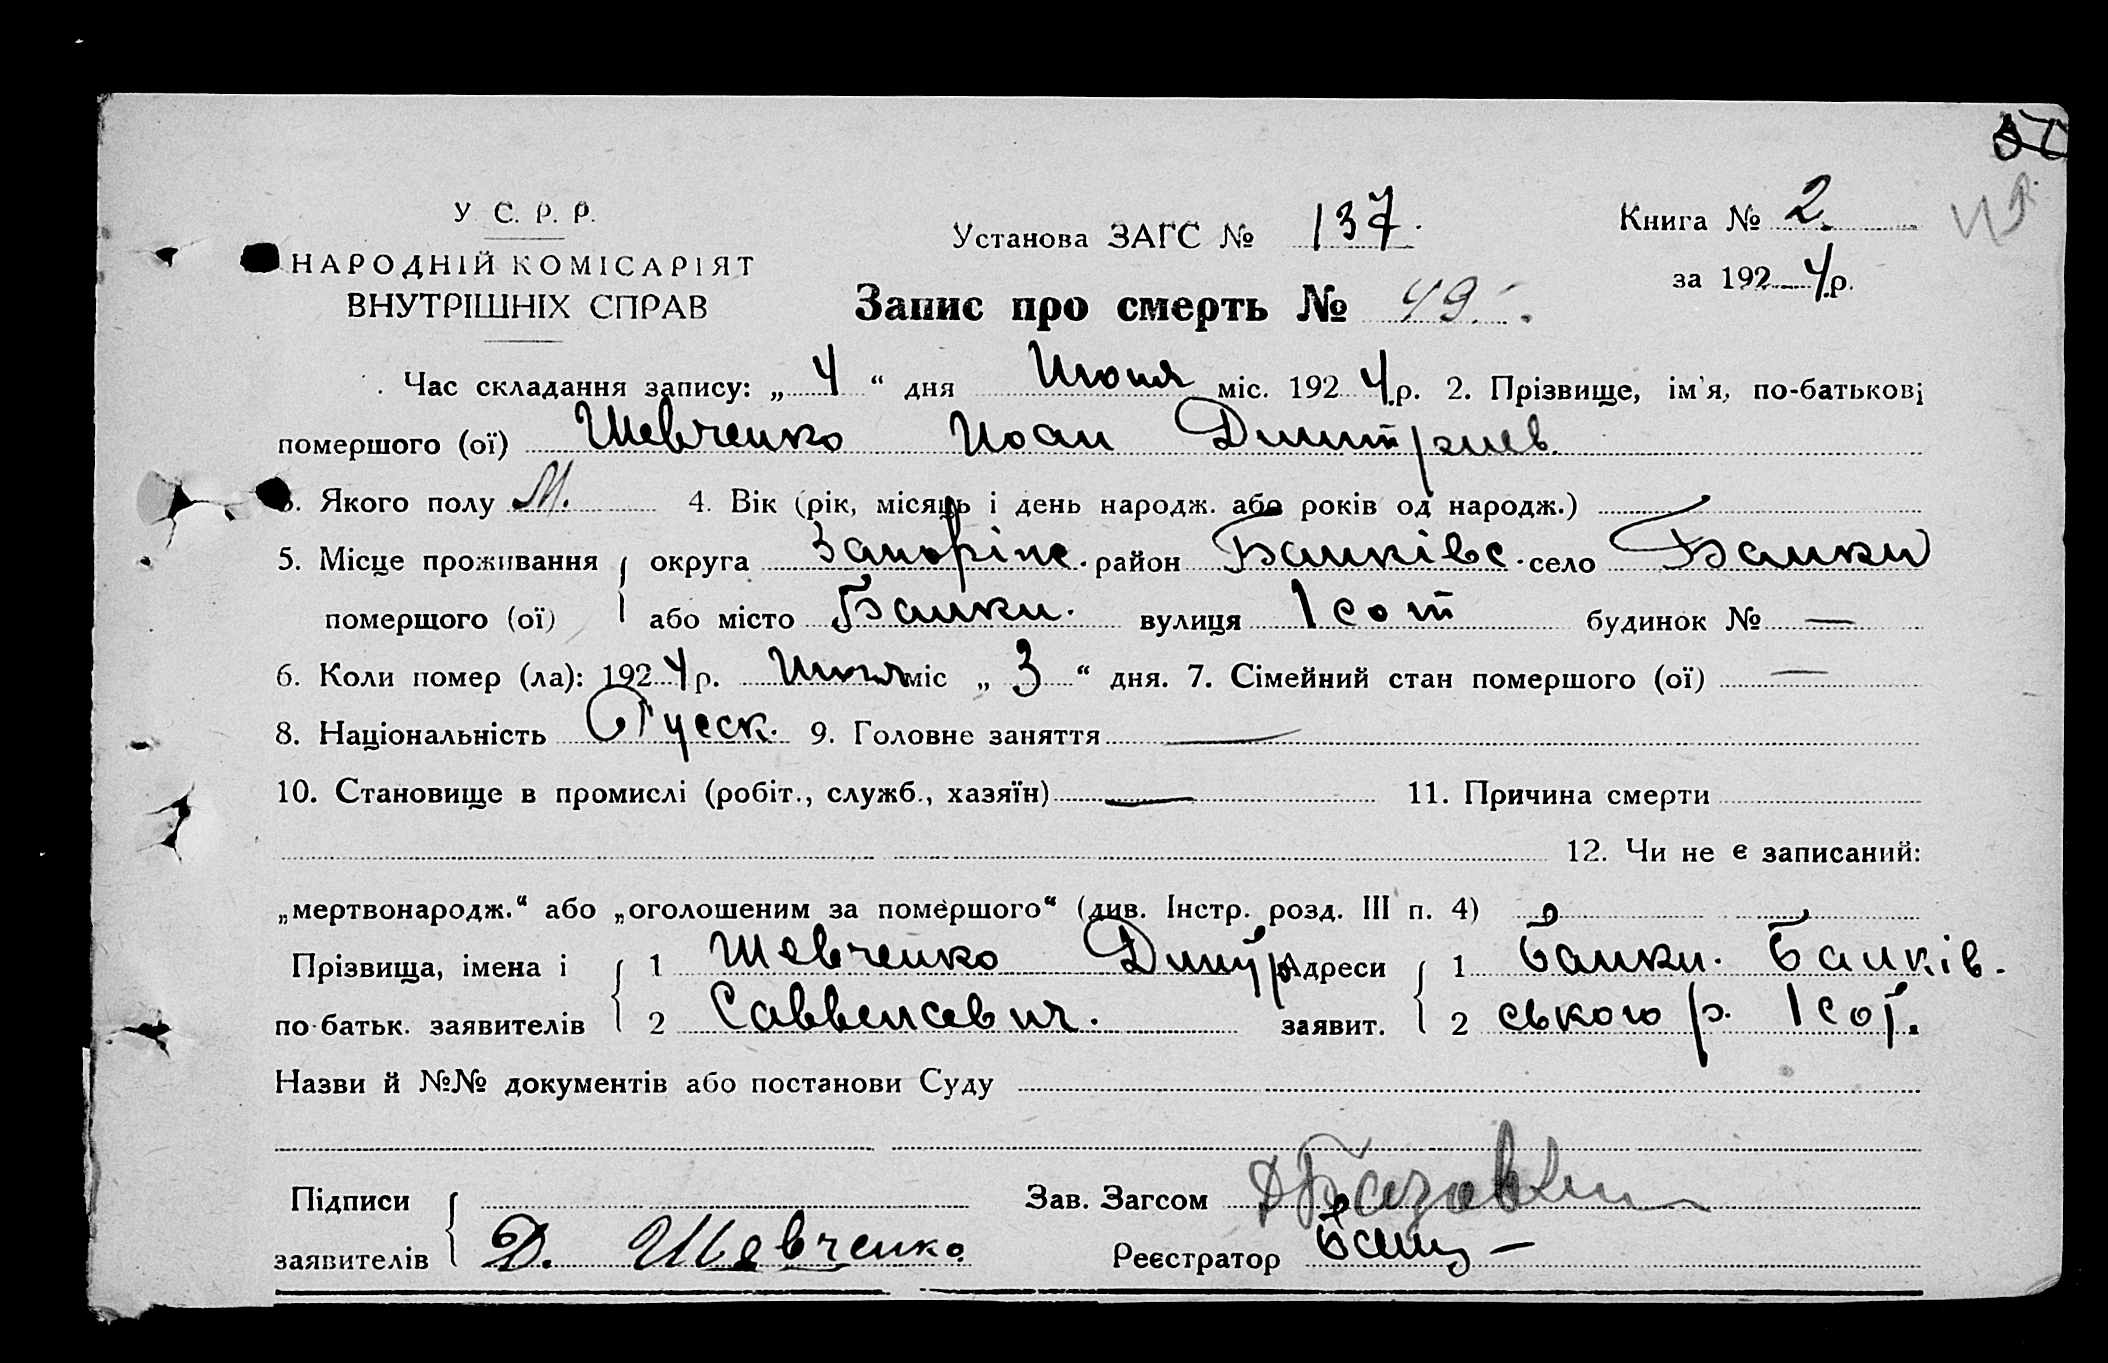 У С. Р. Р.
НАРОДНІЙ КОМІСАРІЯТ
ВНУТРІШНІХ СПРАВ
Установа ЗАГС № 137.
Книга № 2.
за 1924 р.
Запис про смерть № 49.
Час складання запису: „4“ дня Июня міс. 1924 р. 2. Прізвище, ім'я, по-батькові
помершого (ої) Шевченко Иоан Димитриев.
3. Якого полу М. 4. Вік (рік, місяць і день народж. або років од народж.)
5. Місце проживання округа Запоріж. район Балківс. село Балки
помершого (ої) або місто Балки. вулиця 1 сот будинок № —
6. Коли помер (ла): 1924 р. Июня міс „3“ дня. 7. Сімейний стан помершого (ої) —
8. Національність Русск. 9. Головне заняття —
10. Становище в промислі (робіт., служб., хазяїн) — 11. Причина смерти
12. Чи не є записаний:
„мертвонародж.“ або „оголошеним за помершого“ (див. Інстр. розд. III п. 4)
Прізвища, імена і 1 Шевченко Димитр Адреси 1 Балки. Балків-
по-батьк. заявителів 2 Саввельевич. заявит. 2 ського р. 1 сот.
Назви й №№ документів або постанови Суду
Підписи Зав. Загсом
заявителів Д. Шевченко. Реєстратор